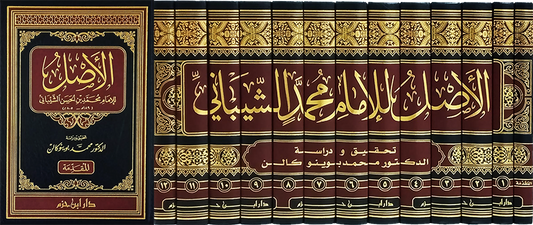 الأصل
للإمام محمد بن الحسن الشيباني
تحقيق ودراسة
الدكتور محمد بوينوكالن
المقدمة
دار ابن حزم
الأصل للإمام محمد الشيباني
تحقيق و دراسة
الدكتور محمد بوينوكالن
المقدمة ١ ٢ ٣ ٤ ٥ ٦ ٧ ٨ ٩ ١٠ ١١ ١٢
دار ابن حزم دار ابن حزم دار ابن حزم